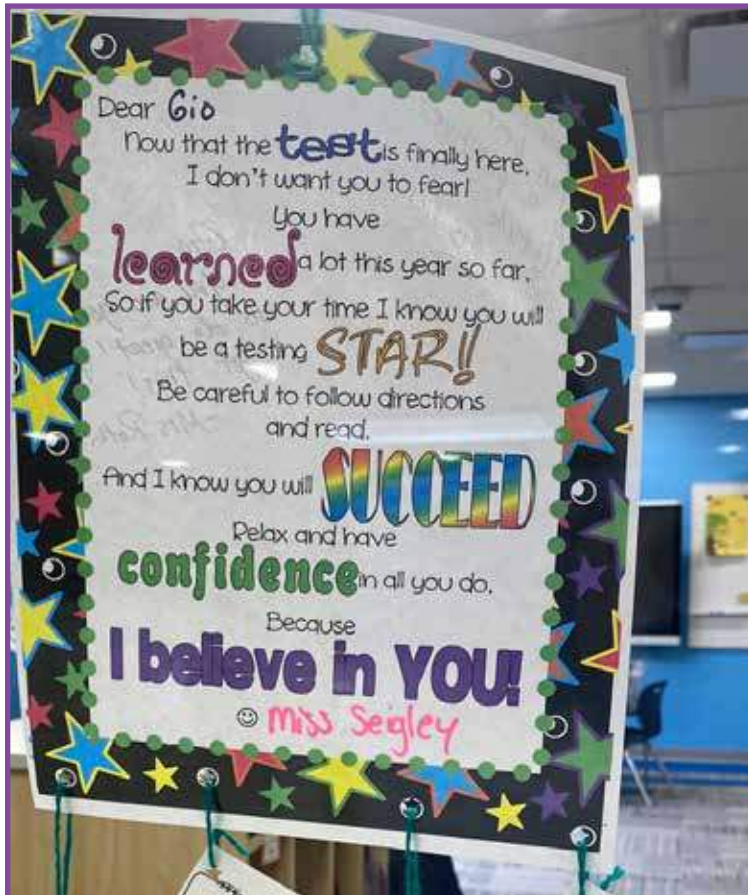 Dear Gio
Now that the test is finally here,
I don't want you to fear!
You have
learned a lot this year so far,
So if you take your time I know you will
be a testing STAR!!
Be careful to follow directions
and read,
And I know you will SUCCEED
Relax and have
confidence in all you do,
Because
I believe in YOU!
☺ Miss Seigley